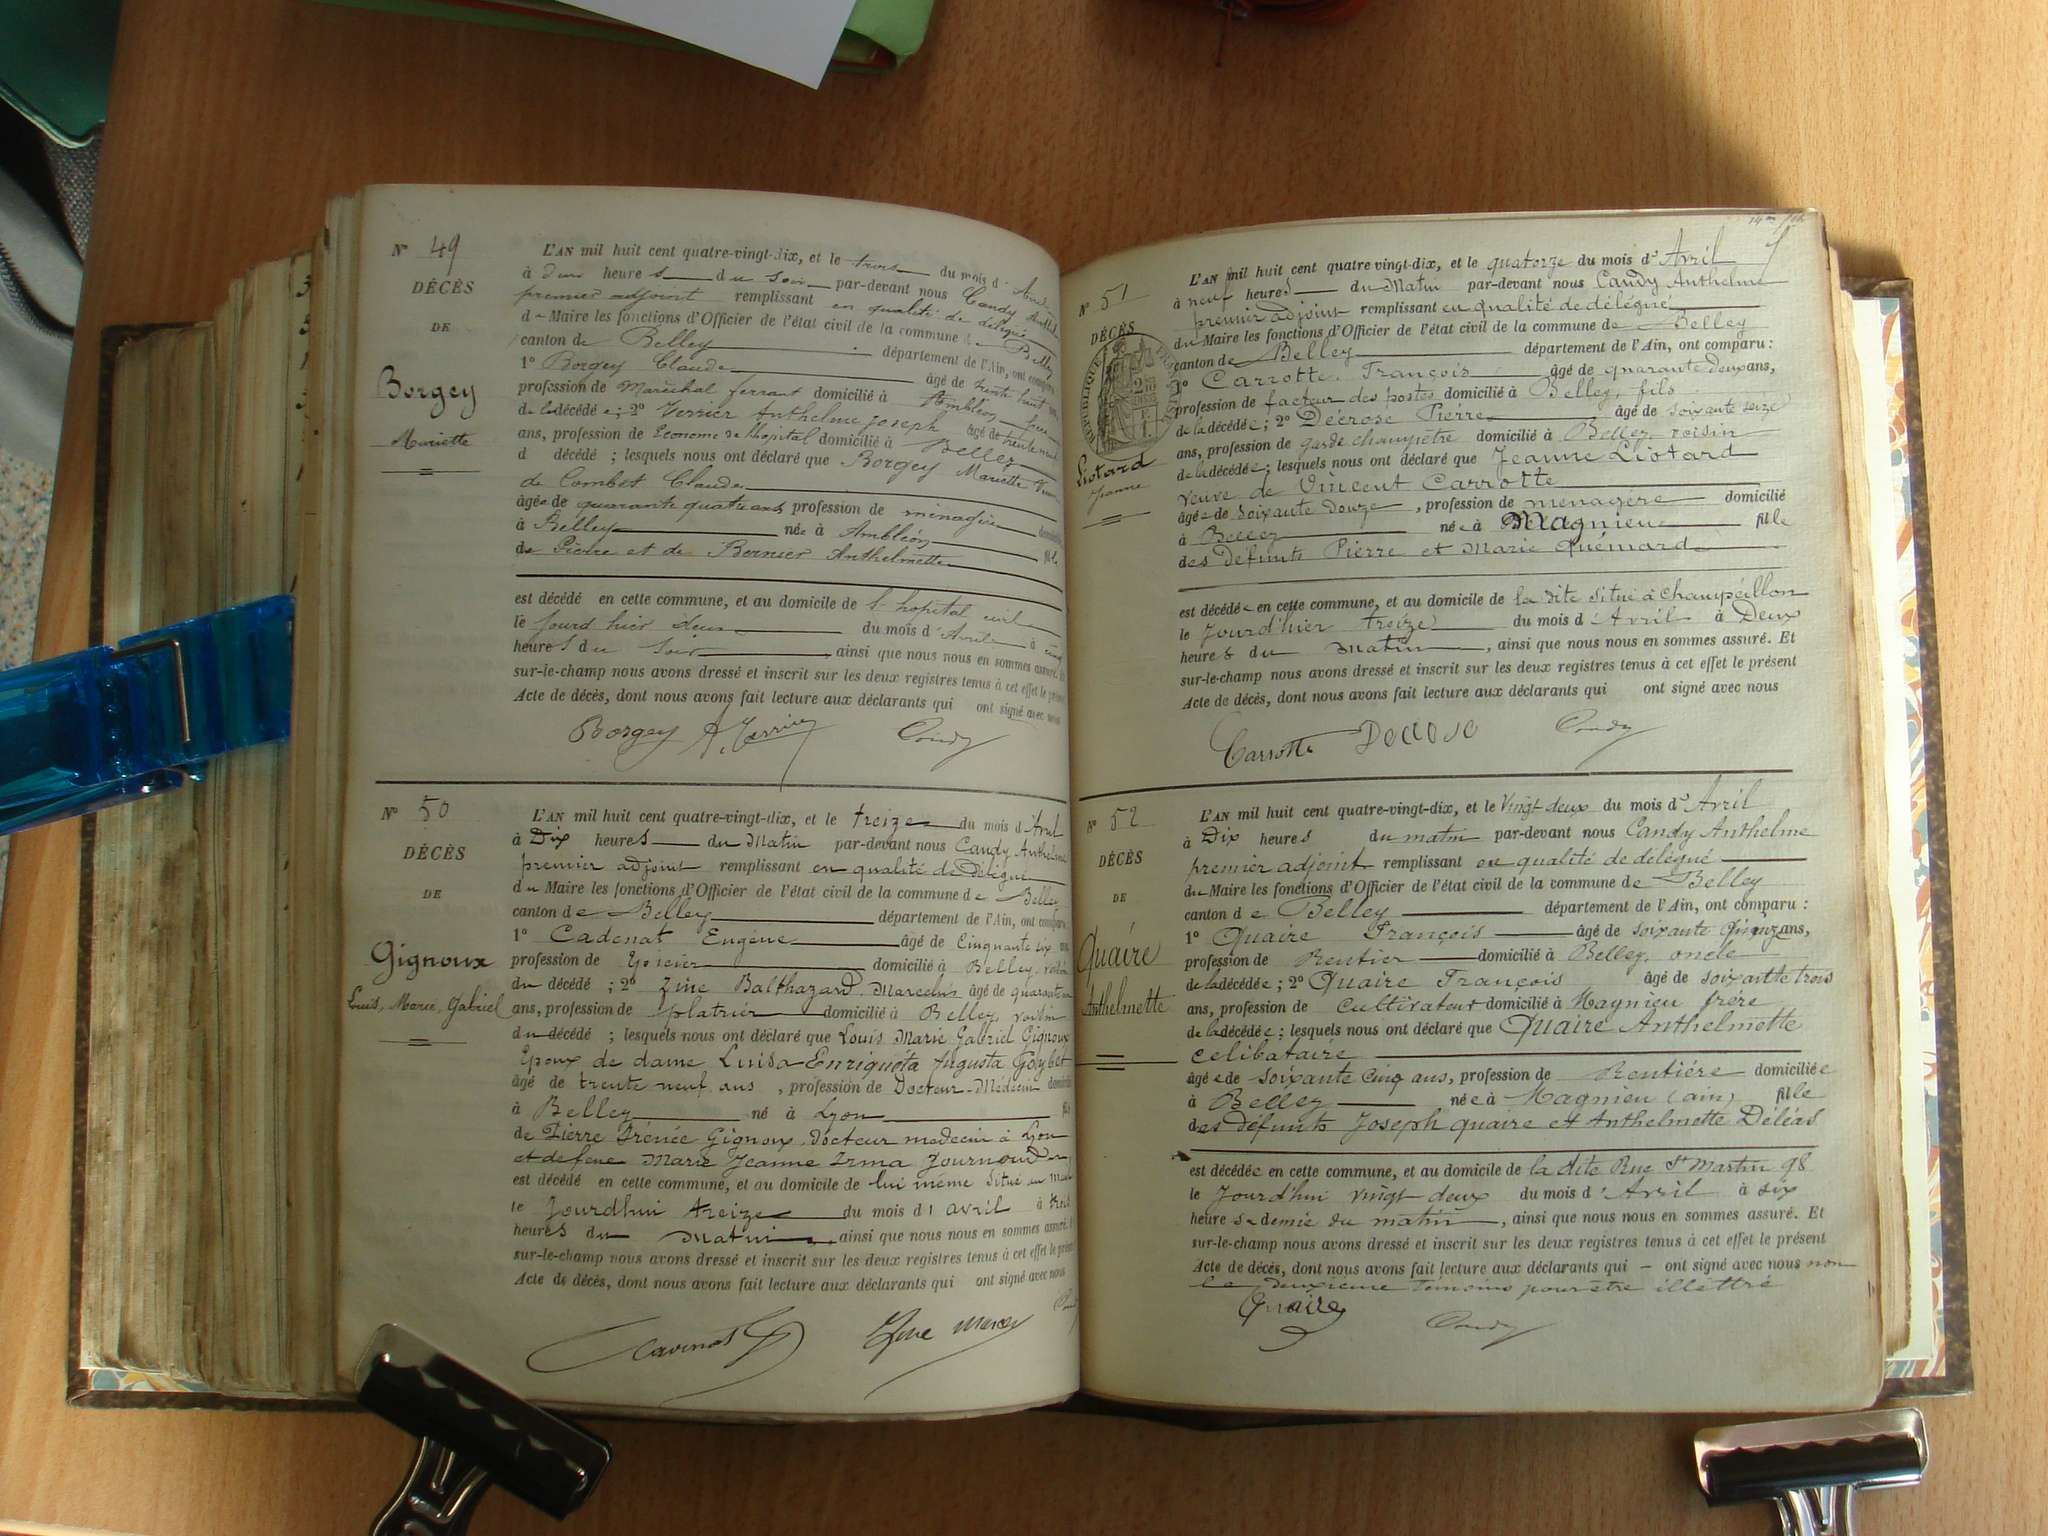 N° 49
DÉCÈS
DE
Borgey
Mariette
L'AN mil huit cent quatre-vingt-dix, et le trois du mois d'Avril
à heures du soir par-devant nous Candy Anthelme
premier adjoint remplissant en qualité de délégué
de Maire les fonctions d'Officier de l'état civil de la commune de Belley
canton de Belley département de l'Ain, ont comparu
1° Borgey Claude âgé de trente huit ans
profession de Maréchal ferrant domicilié à Ambléon frère
de la décédée; 2° Verrier Anthelme Joseph âgé de trente neuf
ans, profession de Econome de l'hôpital domicilié à Belley
d décédé ; lesquels nous ont déclaré que Borgey Mariette Veuve
de Combet Claude
âgée de quarante quatre ans profession de ménagère domiciliée
à Belley née à Ambléon fille
de Pierre et de Bernier Anthelmette
est décédé en cette commune, et au domicile de l'hopital civil
le jourd'hier deux du mois d'Avril à cinq
heures du soir ainsi que nous nous en sommes assuré. Et
sur-le-champ nous avons dressé et inscrit sur les deux registres tenus à cet effet le présent
Acte de décès, dont nous avons fait lecture aux déclarants qui ont signé avec nous
Borgey A. Verrier Candy
N° 50
DÉCÈS
DE
Gignoux
Louis, Marie, Gabriel
L'AN mil huit cent quatre-vingt-dix, et le treize du mois d'Avril
à Dix heures du Matin par-devant nous Candy Anthelme
premier adjoint remplissant en qualité de Délégué
du Maire les fonctions d'Officier de l'état civil de la commune de Belley
canton de Belley département de l'Ain, ont comparu
1° Cadenat Eugène âgé de Cinquante six ans
profession de Epicier domicilié à Belley, voisin
du décédé ; 2° Zine Balthazard Marcelin âgé de quarante
ans, profession de platrier domicilié à Belley, voisin
du décédé ; lesquels nous ont déclaré que Louis Marie Gabriel Gignoux
Epoux de dame Luisa-Enriqueta Augusta Goybet
âgé de trente neuf ans , profession de Docteur-Médecin domicilié
à Belley né à Lyon fils
de Pierre Irénée Gignoux, Docteur medecin à Lyon
et de feue Marie Jeanne Irma Journoud
est décédé en cette commune, et au domicile de lui même situé
le Jourdhui treize du mois d'avril à trois
heures du Matin ainsi que nous nous en sommes assuré. Et
sur-le-champ nous avons dressé et inscrit sur les deux registres tenus à cet effet le présent
Acte de décès, dont nous avons fait lecture aux déclarants qui ont signé avec nous
Zine Marce Candy
N° 51
DÉCÈS
Liotard
Jeanne
L'AN mil huit cent quatre vingt-dix, et le quatorze du mois d'Avril
à neuf heures du Matin par-devant nous Candy Anthelme
premier adjoint remplissant en qualité de délégué
du Maire les fonctions d'Officier de l'état civil de la commune de Belley
canton de Belley département de l'Ain, ont comparu :
1° Carrotte François âgé de quarante deux ans,
profession de facteur des postes domicilié à Belley, fils
de la décédée; 2° Décrose Pierre âgé de soixante seize
ans, profession de garde champêtre domicilié à Belley, voisin
de la décédée; lesquels nous ont déclaré que Jeanne Liotard
veuve de Vincent Carrotte
âgée de soixante douze , profession de menagère domicilié
à Belley née à Magnieu fille
des défunts Pierre et Marie Quémard
est décédée en cette commune, et au domicile de la dite situé à Champeillon
le Jourd'hier treize du mois d'Avril à Deux
heures du matin , ainsi que nous nous en sommes assuré. Et
sur-le-champ nous avons dressé et inscrit sur les deux registres tenus à cet effet le présent
Acte de décès, dont nous avons fait lecture aux déclarants qui ont signé avec nous
Carrotte Decrose Candy
N° 52
DÉCÈS
DE
Quaire
Anthelmette
L'AN mil huit cent quatre-vingt-dix, et le Vingt deux du mois d'Avril
à Dix heures du matin par-devant nous Candy Anthelme
premier adjoint remplissant en qualité de délégué
du Maire les fonctions d'Officier de l'état civil de la commune de Belley
canton de Belley département de l'Ain, ont comparu :
1° Quaire François âgé de soixante quinze ans,
profession de Rentier domicilié à Belley, oncle
de la décédée; 2° Quaire François âgé de soixante trois
ans, profession de Cultivateur domicilié à Magnieu frère
de la décédée; lesquels nous ont déclaré que Quaire Anthelmette
celibataire
âgée de soixante cinq ans, profession de Rentière domiciliée
à Belley née à Magnieu (ain) fille
des défunts Joseph quaire et Anthelmette Déléas
est décédée en cette commune, et au domicile de la dite Rue St Martin 98
le Jourd'hui vingt deux du mois d'Avril à six
heures demie du matin , ainsi que nous nous en sommes assuré. Et
sur-le-champ nous avons dressé et inscrit sur les deux registres tenus à cet effet le présent
Acte de décès, dont nous avons fait lecture aux déclarants qui – ont signé avec nous non
le deuxieme témoins pour être illettré
Quaire Candy